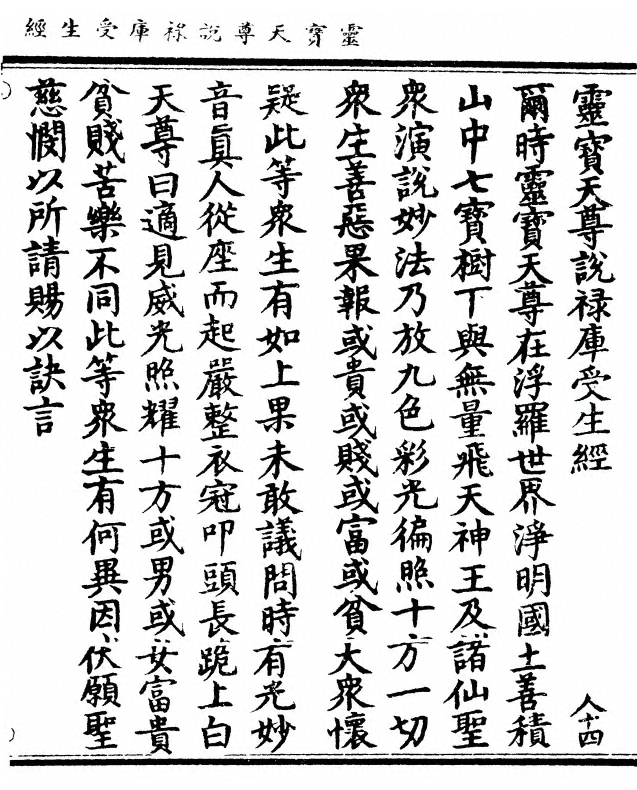 靈寶天尊說祿庫受生經
靈寶天尊說禄庫受生經
人十四
爾時靈寶天尊在浮羅世界淨明國土善積
山中七寶樹下與無量飛天神王及諸仙聖
衆演說妙法乃放九色彩光徧照十方一切
衆生善惡果報或貴或賤或富或貧大衆懷
疑此等衆生有如上果未敢議問時有光妙
音眞人從座而起嚴整衣冠叩頭長跪上白
天尊曰適見威光照耀十方或男或女富貴
貧賤苦樂不同此等衆生有何異因伏願聖
慈憫以所請賜以訣言